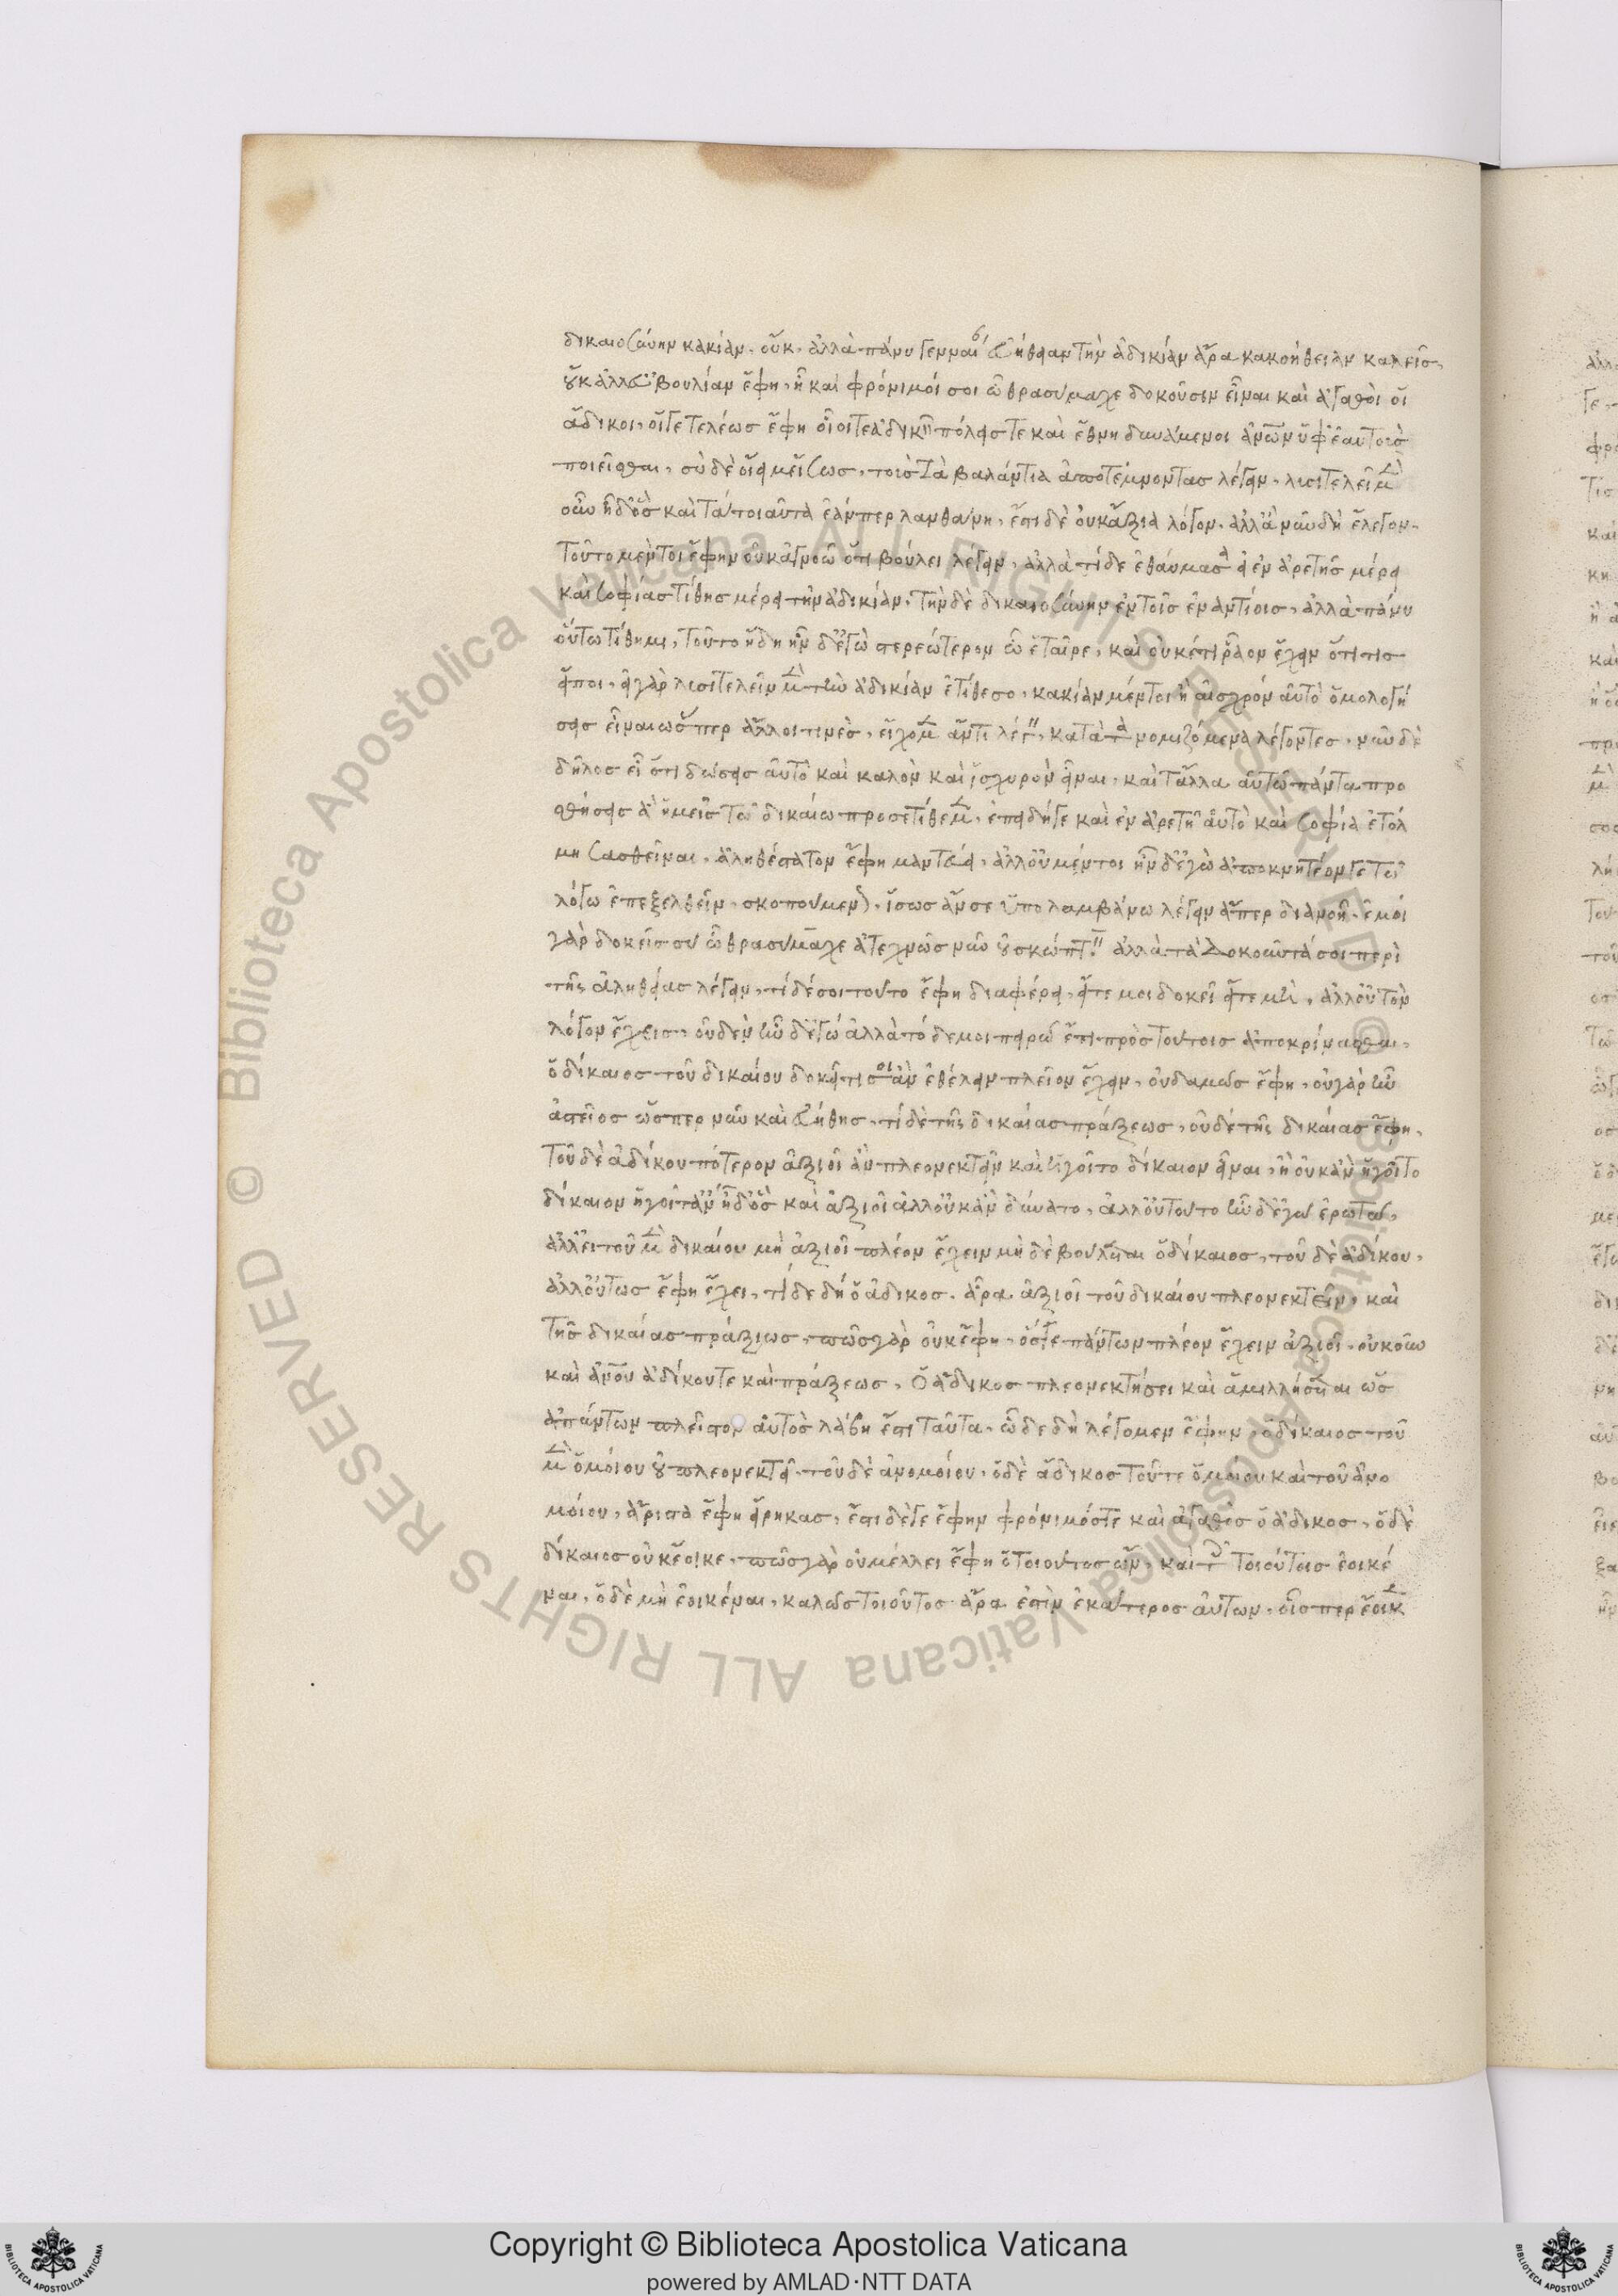 δικαιοσύνην κακίαν. οὔκ. ἀλλὰ πάνυ γενναίαν εὐήθειαν τὴν ἀδικίαν ἆρα κακοήθειαν καλεῖς.
οὔκ ἀλλ' εὐβουλίαν ἔφη. ἦ καὶ φρόνιμοί σοι ὦ θρασύμαχε δοκοῦσιν εἶναι καὶ ἀγαθοὶ οἱ
ἄδικοι. οἵγε τελέως ἔφη οἷοίτε ἀδικεῖν πόλεις τε καὶ ἔθνη δυνάμενοι ἀνθρώπων ὑφ' ἑαυτοὺς
ποιεῖσθαι. σὺ δὲ οἴει με ἴσως. τοὺς τὰ βαλάντια ἀποτέμνοντας λέγειν. λυσιτελεῖ μὲν
οὖν ἦ δ' ὃς καὶ τὰ τοιαῦτα ἐάνπερ λανθάνη. ἔστι δὲ οὐκ ἄξια λόγου. ἀλλ' ἃ νῦν δὴ ἔλεγον.
τοῦτο μέντοι ἔφην οὐκ ἀγνοῶ ὅτι βούλει λέγειν. ἀλλὰ τί δε ἐθαύμασα εἰ ἐν ἀρετῆς μέρει
καὶ σοφίας τίθης μέρει τὴν ἀδικίαν. τὴν δὲ δικαιοσύνην ἐν τοῖς ἐναντίοις. ἀλλὰ πάνυ
οὕτω τίθημι. τοῦτο ἤδη ἦν δ' ἐγὼ στερεώτερον ὦ ἑταῖρε. καὶ οὐκέτι ῥᾶον ἔχειν ὅτι τις
εἴποι. εἰ γὰρ λυσιτελεῖν μὲν τὴν ἀδικίαν ἐτίθεσο. κακίαν μέντοι ἢ αἰσχρὸν αὐτὸ ὁμολογή
σεις εἶναι ὥσπερ ἄλλοι τινὲς. εἴχομεν ἄν τι λέγειν. κατὰ τὰ νομιζόμενα λέγοντες. νῦν δὲ
δῆλος εἶ ὅτι δώσεις αὐτὸ καὶ καλὸν καὶ ἰσχυρὸν εἶναι. καὶ τἆλλα αὐτῶ πάντα προ
σθήσεις ἃ ἡμεῖς τῶ δικαίω προσετίθεμεν. ἐπειδήγε καὶ ἐν ἀρετῆ αὐτὸ καὶ σοφία ἐτόλ
μησας θεῖναι. ἀληθέστατον ἔφη μαντεύει. ἀλλ' οὐ μέντοι ἦν δ' ἐγὼ ἀποκνητέον γε τῶ
λόγω ἐπεξελθεῖν. σκοπούμενον. ἴσως ἄν σε ὑπολαμβάνω λέγειν ἅπερ διανοῆ. ἐμοὶ
γὰρ δοκεῖς συ ὦ θρασύμαχε ἀτεχνῶς νῦν οὐ σκώπτειν ἀλλὰ τὰ δοκοῦντά σοι περὶ
τῆς ἀληθείας λέγειν. τί δέ σοι τοῦτο ἔφη διαφέρει. εἴτε μοι δοκεῖ εἴτε μὴ. ἀλλ' οὐ τὸν
λόγον ἔχεις. οὐδὲν ἦν δ' ἐγώ ἀλλὰ τό δε μοι πειρῶ ἔτι πρὸς τούτοις ἀποκρίνασθαι.
ὁ δίκαιος τοῦ δικαίου δοκεῖ τί σοι ἂν ἐθέλειν πλεῖον ἔχειν. οὐδαμῶς ἔφη. οὐ γὰρ ἦν
ἀστεῖος ὥσπερ νῦν καὶ εὐήθης. τί δὲ τῆς δικαίας πράξεως. οὐδὲ τῆς δικαίας ἔφη.
τοῦ δὲ ἀδίκου πότερον ἀξιοῖ ἂν πλεονεκτεῖν καὶ ἡγοῖτο δίκαιον εἶναι. ἢ οὐκ ἂν ἡγοῖτο
δίκαιον ἡγοῖτ' ἄν ἦ δ' ὃς καὶ ἀξιοῖ ἀλλ' οὐκ ἂν δύναιτο. ἀλλ' οὐ τοῦτο ἦν δ' ἐγὼ ἐρωτῶ.
ἀλλ' εἰ τοῦ μὲν δικαίου μὴ ἀξιοῖ πλέον ἔχειν μὴ δὲ βούλεται ὁ δίκαιος. τοῦ δὲ ἀδίκου.
ἀλλ' οὕτως ἔφη ἔχει. τί δε δή ὁ ἄδικος. ἆρα ἀξιοῖ τοῦ δικαίου πλεονεκτεῖν. καὶ
τῆς δικαίας πράξιως. πῶς γὰρ οὐκ ἔφη. ὅς γε πάντων πλέον ἔχειν ἀξιοῖ. οὐκοῦν
καὶ ἀνθρώπου ἀδίκου τε καὶ πράξεως. ὁ ἄδικος πλεονεκτήσει καὶ ἁμιλλήσεται ὡς
ἁπάντων πλεῖστον αὐτὸς λάβη ἔστι ταῦτα. ὧδε δὴ λέγομεν ἔφην. ὁ δίκαιος τοῦ
μὲν ὁμοίου οὐ πλεονεκτεῖ. τοῦ δὲ ἀνομοίου. ὁ δὲ ἄδικος τοῦτε ὁμοίου καὶ τοῦ ἀνο
μοίου. ἄριστα ἔφη εἴρηκας. ἔστι δέ γε ἔφην φρόνιμός τε καὶ ἀγαθὸς ὁ ἄδικος. ὁ δὲ
δίκαιος οὐκ ἔοικε. πῶς γὰρ οὐ μέλλει ἔφη ὁ τοιοῦτος ὢν. καὶ τοῖς τοιούτοις ἐοικέ
ναι. ὁ δὲ μὴ ἐοικέναι. καλῶς τοιοῦτος ἄρα ἐστὶν ἑκάτερος αὐτῶν. οἷσπερ ἔοικεν